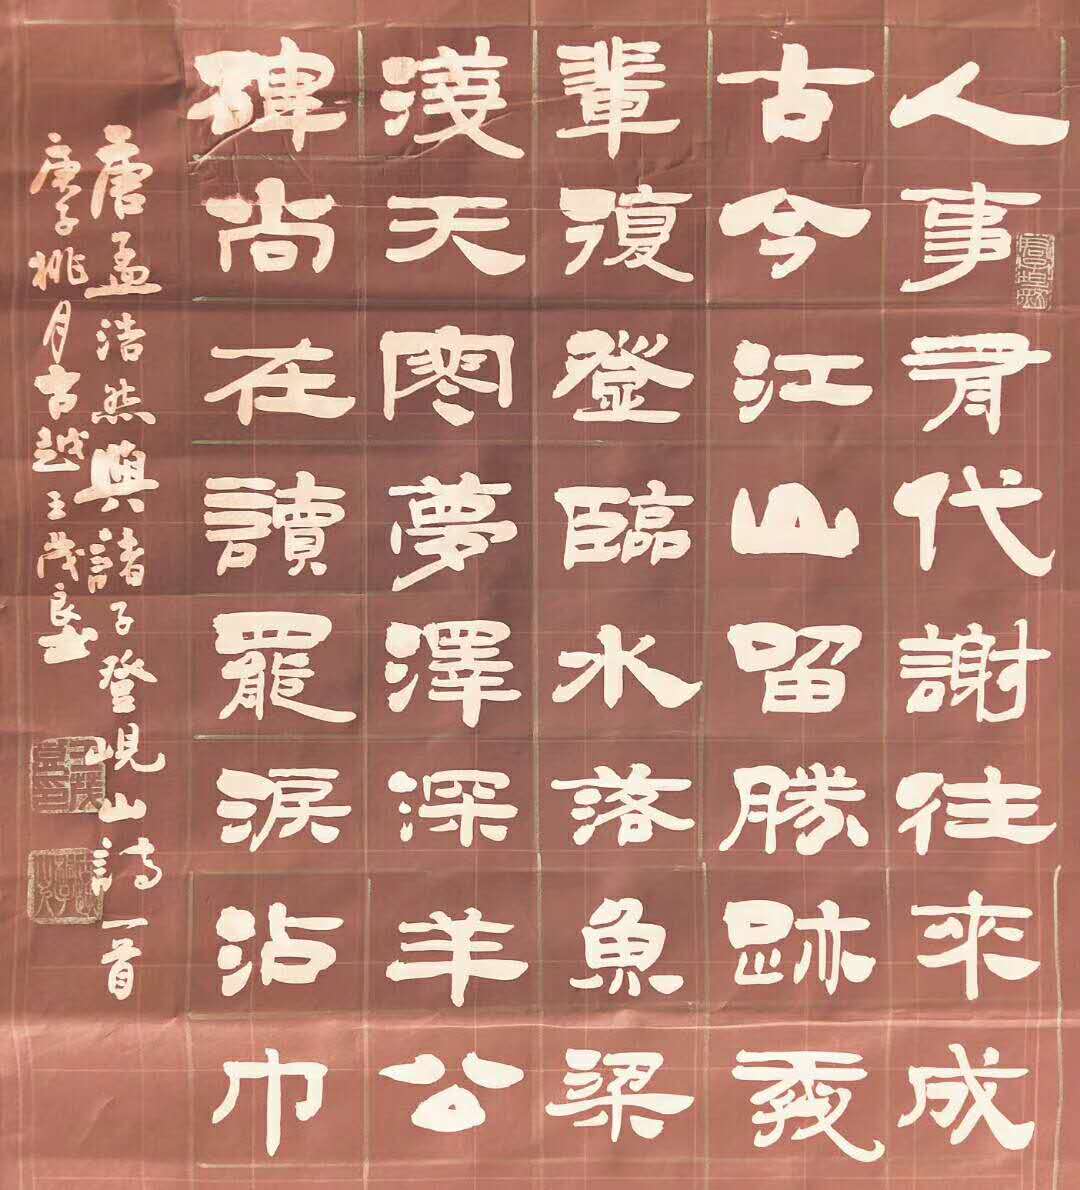 人事有代謝往來成
古今江山留勝跡我
輩復登臨水落魚梁
淺天寒夢澤深羊公
碑尚在讀罷淚沾巾
唐孟浩然與諸子登峴山詩一首
庚子桃月古越王茂良書